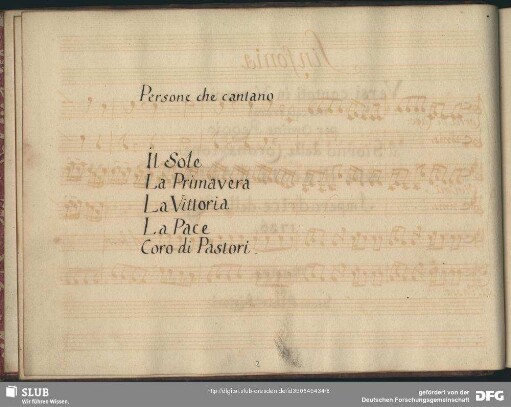 Persone che cantano
il Sole
La Primavera
La Vittoria
La Pace
Coro di Pastori.
2
SLUB
Wir führen Wissen.
gefördert von der
Deutschen Forschungsgemeinschaft
DFG